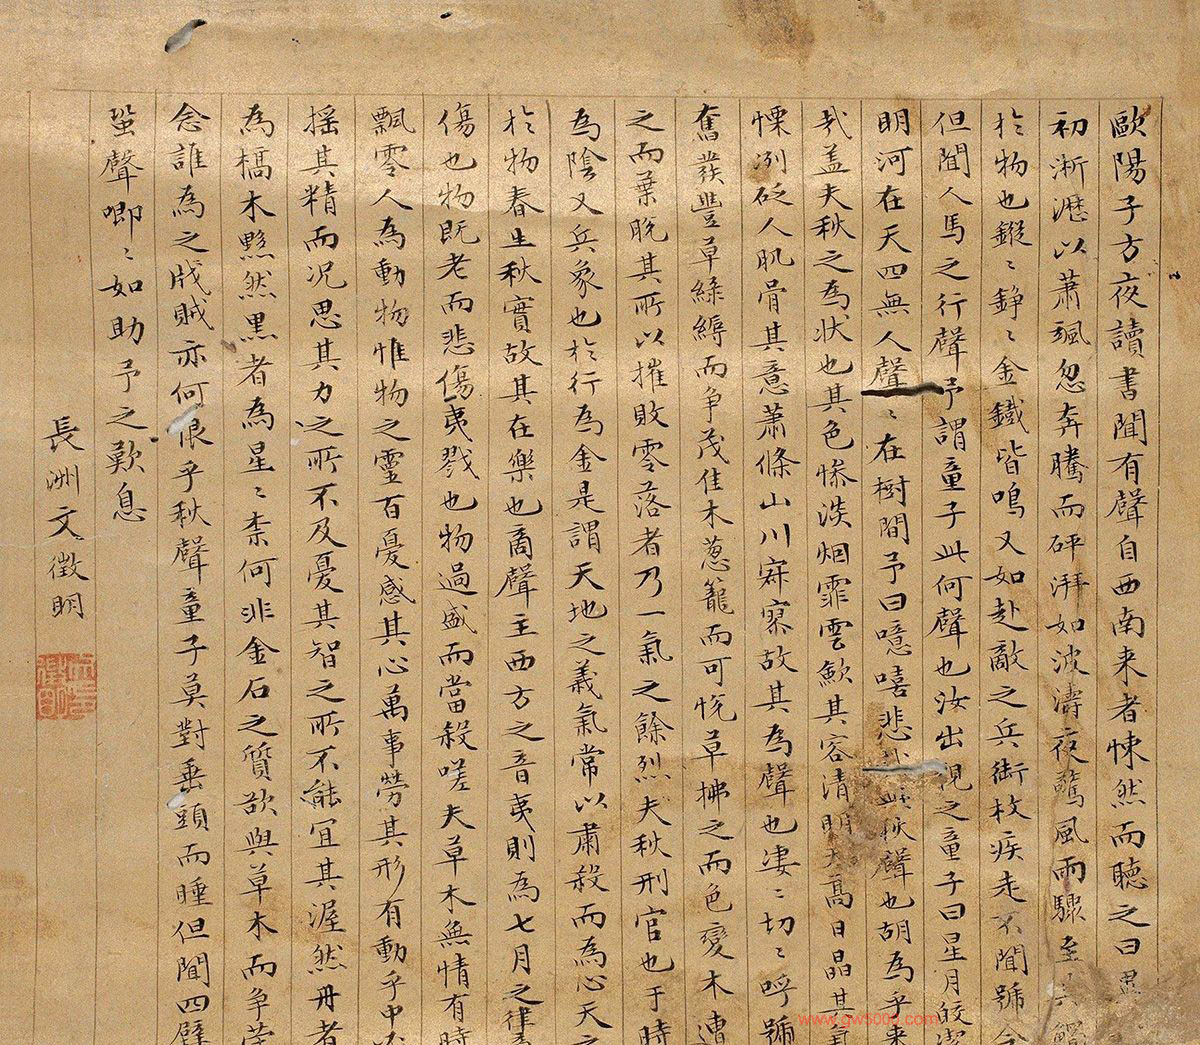 歐陽子方夜讀書聞有聲自西南来者悚然而聽之曰異
初淅瀝以蕭颯忽奔騰而砰湃如波濤夜驚風雨驟至其觸
於物也鏦〻錚〻金鐵皆鳴又如赴敵之兵銜枚疾走不聞號令
但聞人馬之行聲予謂童子此何聲也汝出視之童子曰星月皎潔
明河在天四無人聲〻在樹間予曰噫嘻悲哉此秋聲也胡為乎来
哉盖夫秋之為状也其色慘淡烟霏雲歛其容清明天高日晶其氣
慄冽砭人肌骨其意蕭條山川寂寥故其為聲也凄〻切〻呼號
奮發豐草綠縟而争茂佳木葱籠而可悦草拂之而色變木遭
之而葉脱其所以摧敗零落者乃一氣之餘烈夫秋刑官也于時
為陰又兵象也於行為金是謂天地之義氣常以肅殺而為心天之
於物春生秋實故其在樂也商聲主西方之音夷則為七月之律
傷也物既老而悲傷夷戮也物過盛而當殺嗟夫草木無情有時
飄零人為動物惟物之靈百憂感其心萬事勞其形有動乎中
摇其精而况思其力之所不及憂其智之所不能宜其渥然丹者
為槁木黟然黒者為星〻柰何非金石之質欲與草木而争榮
念誰為之戕賊亦何恨乎秋聲童子莫對垂頭而睡但聞四壁
蛩聲唧〻如助予之歎息
長洲文徵明
www.gw5000.com